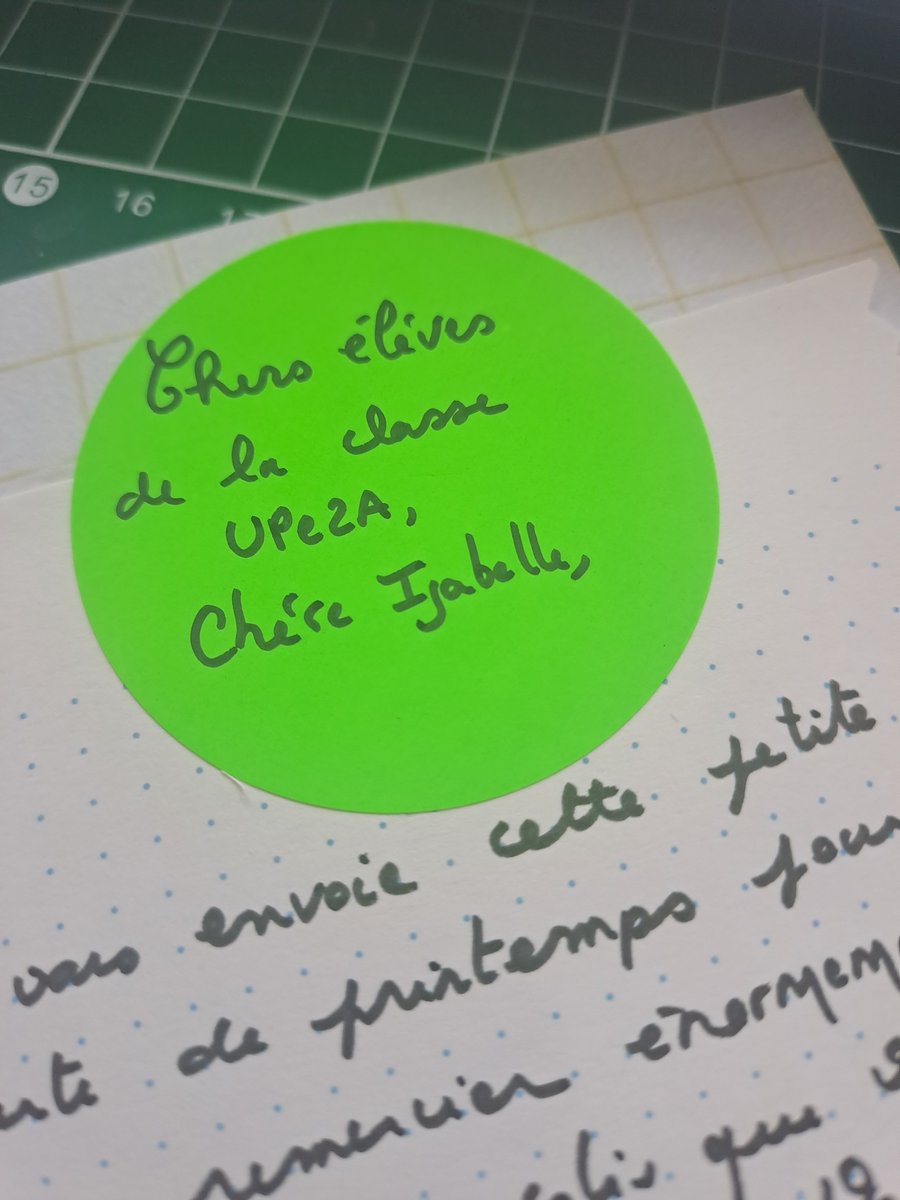 15 16 17
Chers élèves
de la classe
UPe2A,
Chère Isabelle,
vous envoie cette petite
de printemps pour
remercier énormém
que